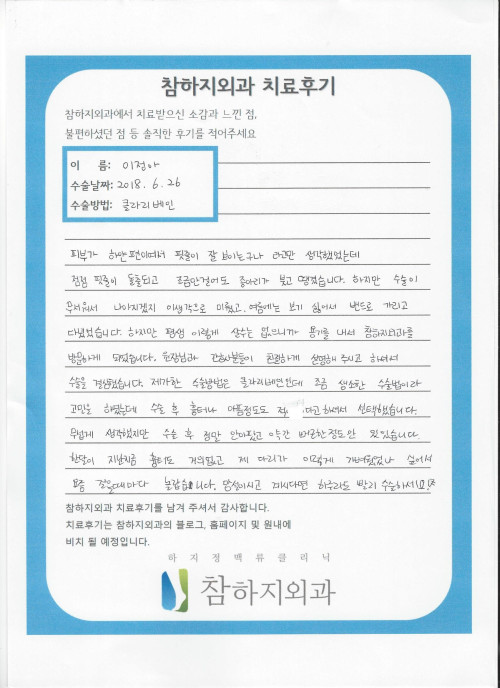 참하지외과 치료후기
참하지외과에서 치료받으신 소감과 느낀 점,
불편하셨던 점 등 솔직한 후기를 적어주세요
이 름: 이정아
수술날짜: 2018. 6. 26
수술방법: 클라리베인
피부가 하얀편이여서 핏줄이 잘 보이는구나 라고만 생각했었는데
점점 핏줄이 돌출되고 조금만걸어도 종아리가 붓고 땡겼습니다. 하지만 수술이
무서워서 나아지겠지 이생각으로 미뤘고, 여름에는 보기 싫어서 밴드로 가리고
다녔었습니다. 하지만 평생 이렇게 살수는 없으니까 용기를 내서 참하지외과를
방문하게 되었습니다. 원장님과 간호사분들이 친절하게 설명해 주시고 하셔서
수술을 결정했습니다. 제가한 수술방법은 클라리베인인데 조금 생소한 수술법이라
고민을 하였는데 수술 후 흉터나 아픔정도도 적다고하셔서 선택했습니다.
무섭게 생각했지만 수술 후 정말 안아팠고 약간 뻐근한정도만 있었습니다
한달이 지난지금 흉터도 거의없고 제 다리가 이렇게 가벼웠었나 싶어서
요즘 걸을때마다 놀랍습니다. 망설이시고 계시다면 하루라도 빨리 수술하세요!
참하지외과 치료후기를 남겨 주셔서 감사합니다.
치료후기는 참하지외과의 블로그, 홈페이지 및 원내에
비치 될 예정입니다.
하지정맥류클리닉
참하지외과